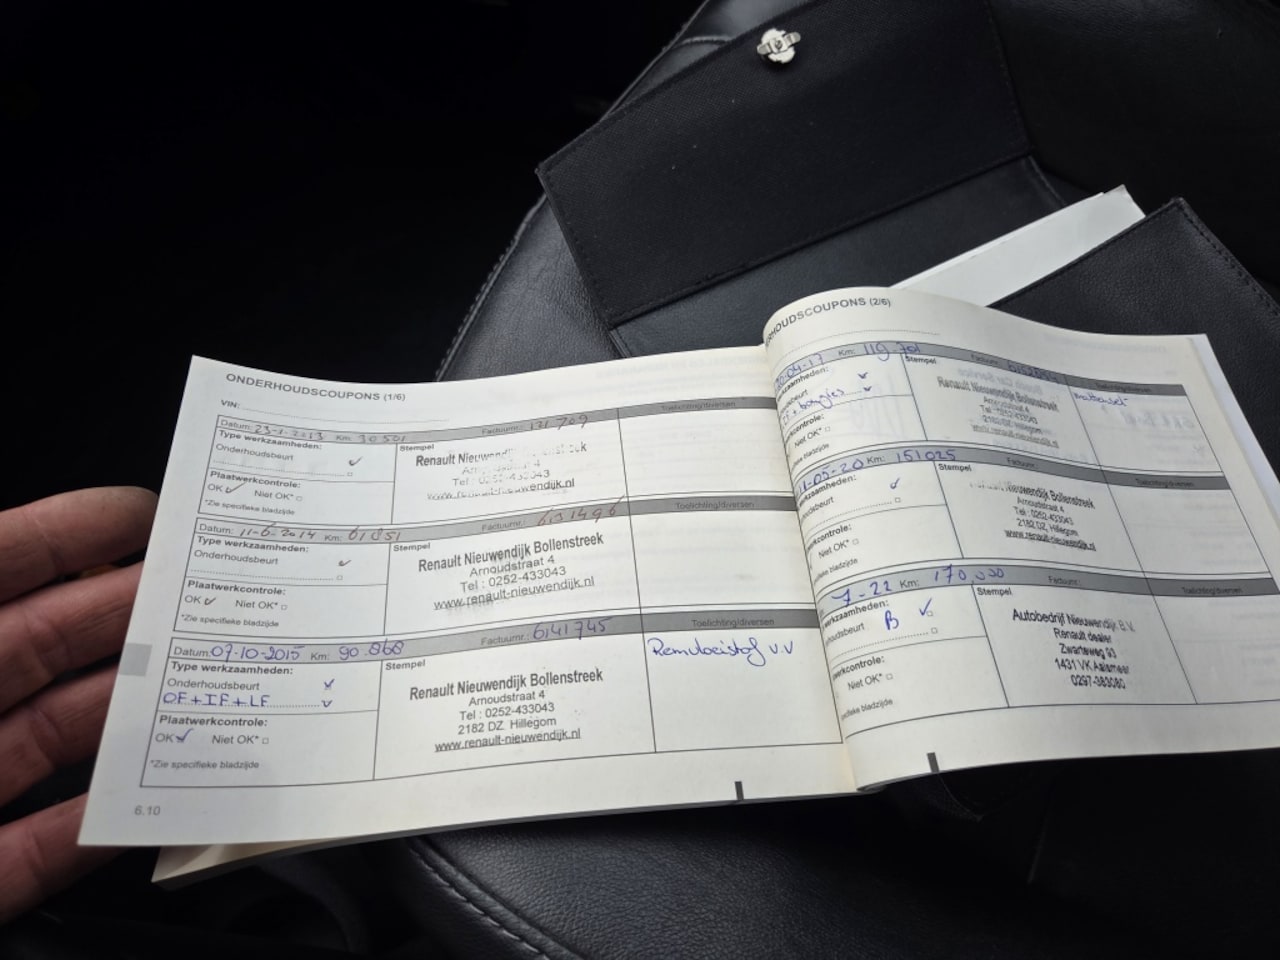 ONDERHOUDSCOUPONS (1/6)
VIN:
Datum: 23-1-2013 Km: 30501 Factuurnr.: 131709 Toelichting/diversen
Type werkzaamheden: Stempel
Onderhoudsbeurt
Renault Nieuwendijk Bollenstreek
Arnoudstraat 4
Tel : 0252-433043
www.renault-nieuwendijk.nl
Plaatwerkcontrole:
OK Niet OK*
*Zie specifieke bladzijde
Datum: 11-6-2014 Km: 61851 Factuurnr.: 6131496 Toelichting/diversen
Type werkzaamheden: Stempel
Onderhoudsbeurt
Renault Nieuwendijk Bollenstreek
Arnoudstraat 4
Tel : 0252-433043
www.renault-nieuwendijk.nl
Plaatwerkcontrole:
OK Niet OK*
*Zie specifieke bladzijde
Datum: 07-10-2015 Km: 90.868 Factuurnr.: 6141745 Toelichting/diversen
Type werkzaamheden: Stempel
Onderhoudsbeurt
OF+IF+LF
Renault Nieuwendijk Bollenstreek
Arnoudstraat 4
Tel : 0252-433043
2182 DZ Hillegom
www.renault-nieuwendijk.nl
Remvloeistof v.v
Plaatwerkcontrole:
OK Niet OK*
*Zie specifieke bladzijde
6.10
RHOUDSCOUPONS (2/6)
-04-17 Km: 119 701 Factuurnr.: Toelichting/diversen
rkzaamheden: Stempel
+ bougies
Renault Nieuwendijk Bollenstreek
Arnoudstraat 4
Tel : 0252-433043
2182 DZ Hillegom
www.renault-nieuwendijk.nl
controle:
Niet OK*
bladzijde
11-05-20 Km: 151025 Factuurnr.: Toelichting/diversen
rkzaamheden: Stempel
Nieuwendijk Bollenstreek
Arnoudstraat 4
Tel : 0252-433043
2182 DZ Hillegom
www.renault-nieuwendijk.nl
erkcontrole:
Niet OK*
specifieke bladzijde
7-22 Km: 170.000 Factuurnr.: Toelichting/diversen
rkzaamheden: Stempel
houdsbeurt B
Autobedrijf Nieuwendijk B.V.
Renault dealer
Zwarteweg 93
1431 VK Aalsmeer
0297-383080
erkcontrole:
Niet OK*
specifieke bladzijde